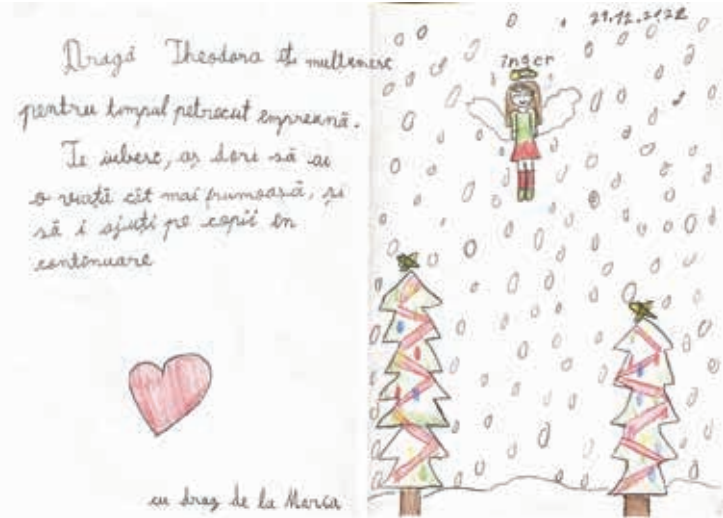 Dragă Theodora îți multenesc
pentru timpul petrecut empreană.
Te iubesc, aș dori să ai
o viață cît mai frumoasă, și
să i ajuți pe copii en
contenuare
cu drag de la Marca
21.12.2022
înger